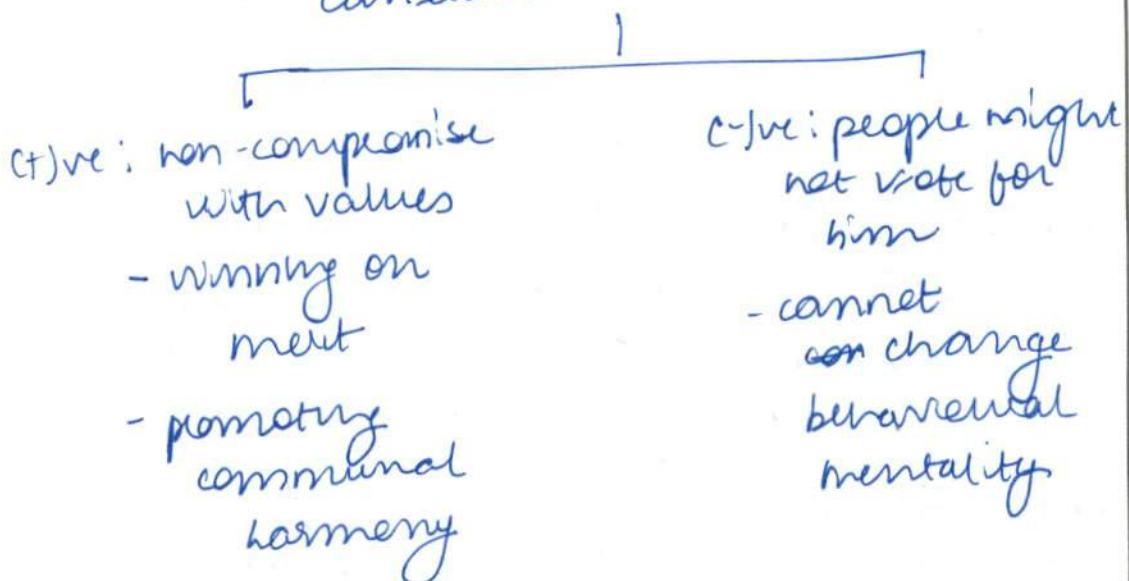 (+)ve : non-compromise
with values
- winning on
merit
- promoting
communal
harmony
(-)ve : people might
not vote for
him
- cannot
change
behavioural
mentality